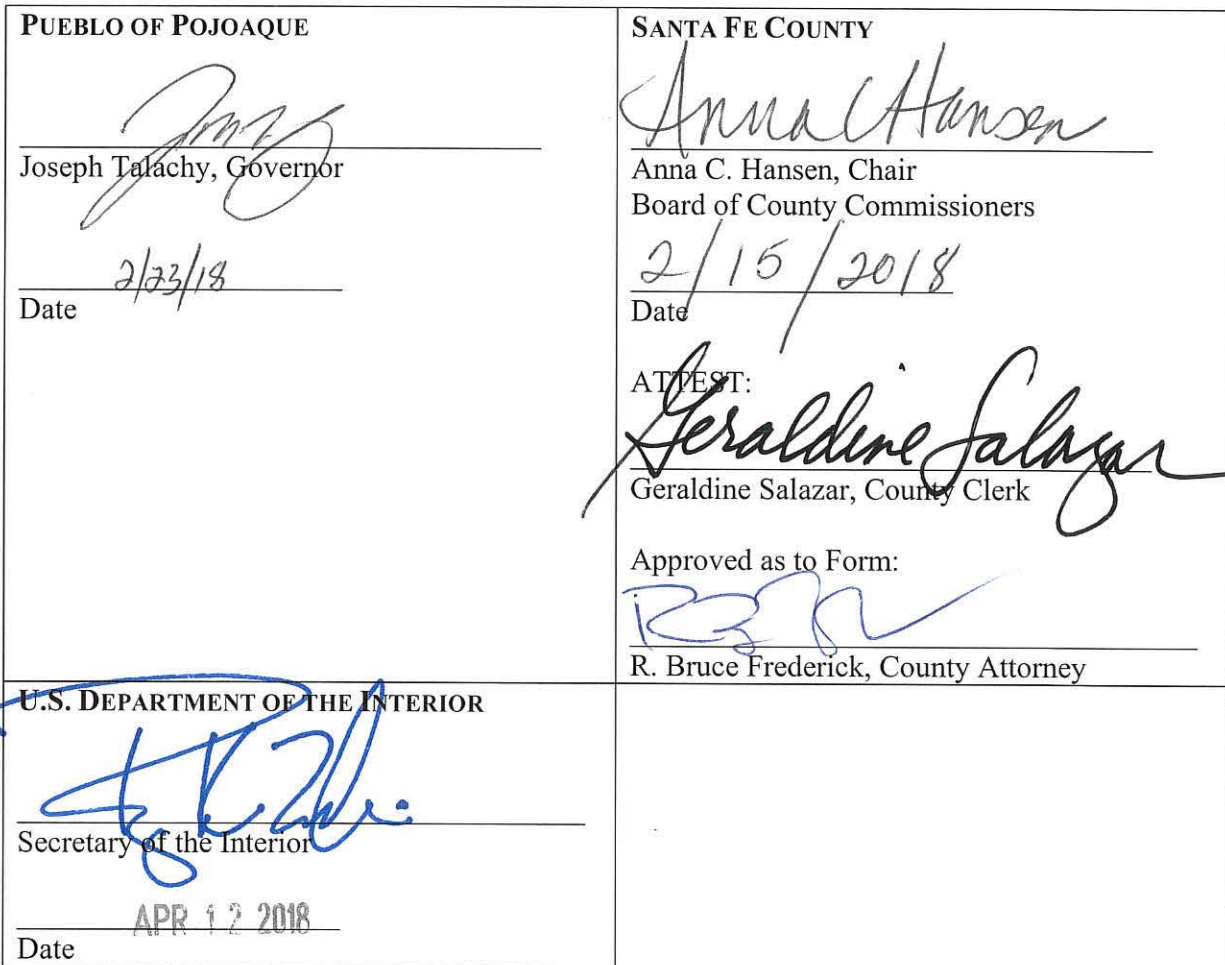 PUEBLO OF POJOAQUE
Joseph Talachy, Governor
2/23/18
Date
SANTA FE COUNTY
Anna C Hansen
Anna C. Hansen, Chair
Board of County Commissioners
2/15/2018
Date
ATTEST:
Geraldine Salazar
Geraldine Salazar, County Clerk
Approved as to Form:
R. Bruce Frederick, County Attorney
U.S. DEPARTMENT OF THE INTERIOR
Secretary of the Interior
APR 12 2018
Date